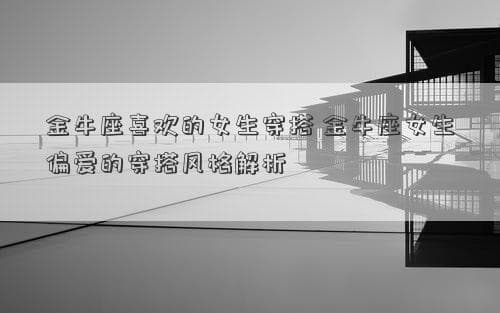 金牛座喜欢的女生穿搭 金牛座女生
偏爱的穿搭风格解析